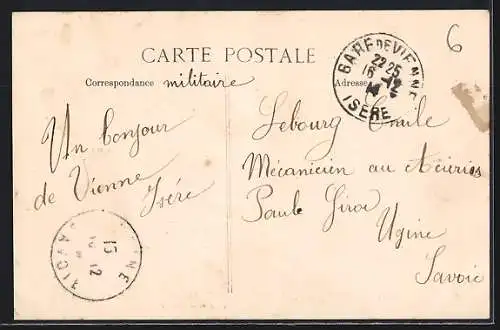 6
CARTE POSTALE
Correspondance militaire
Adresse
GARE DE VIENNE
22 25
16 - 12
ISÈRE
Un bonjour
de Vienne
Isère
Lebourg Emile
Mécanicien au Aciéries
Paul Girod
Ugine
Savoie
UGINE
15
12
SAVOIE